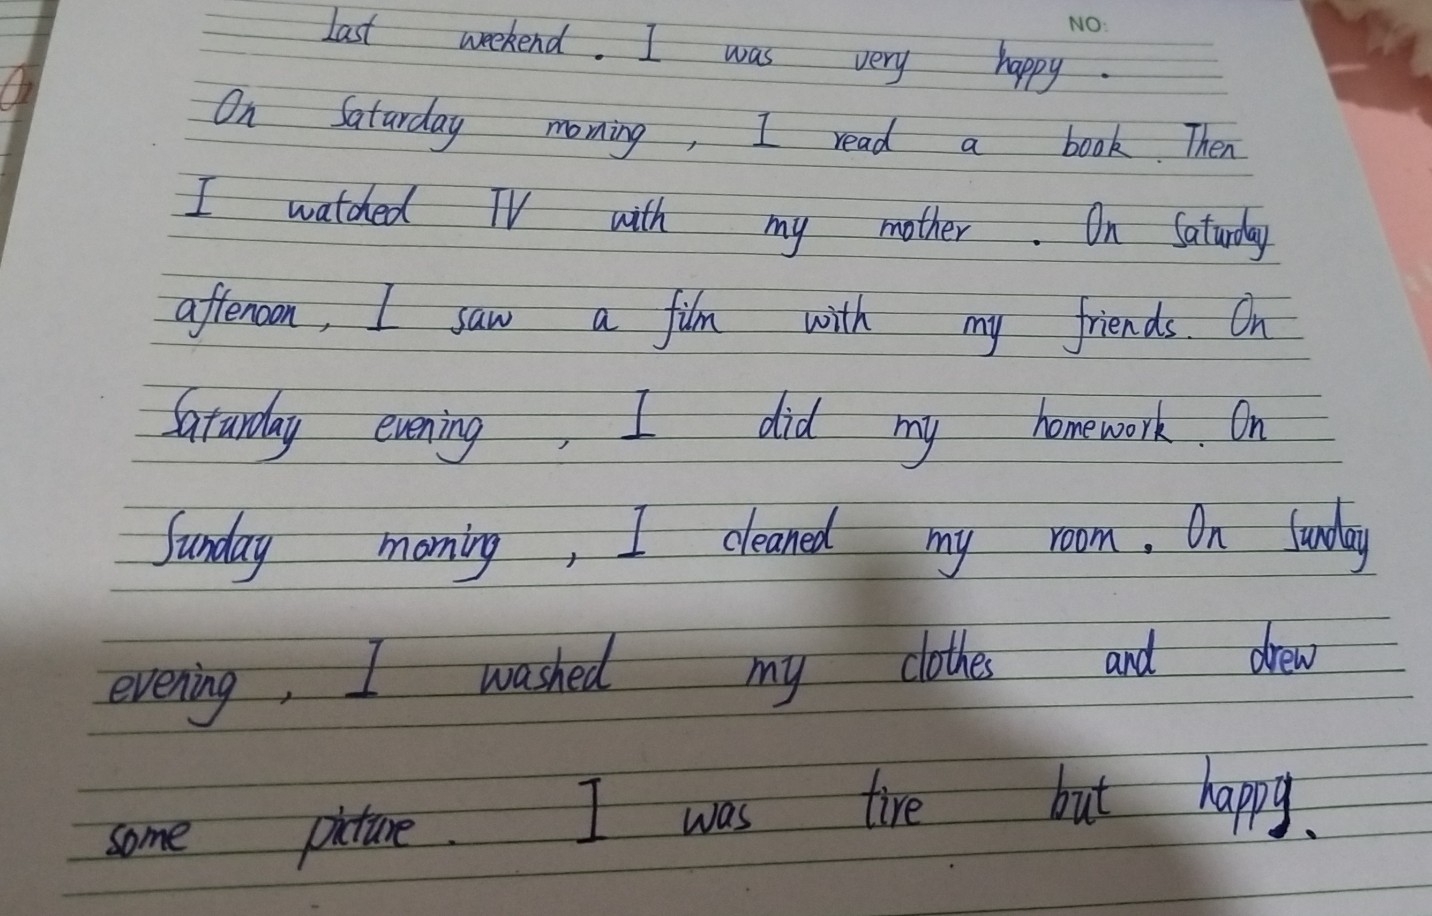 NO:
last weekend. I was very happy.
On Saturday morning, I read a book. Then
I watched TV with my mother. On Saturday
afternoon, I saw a film with my friends. On
Saturday evening, I did my homework. On
Sunday morning, I cleaned my room. On Sunday
evening, I washed my clothes and drew
some picture. I was tire but happy.